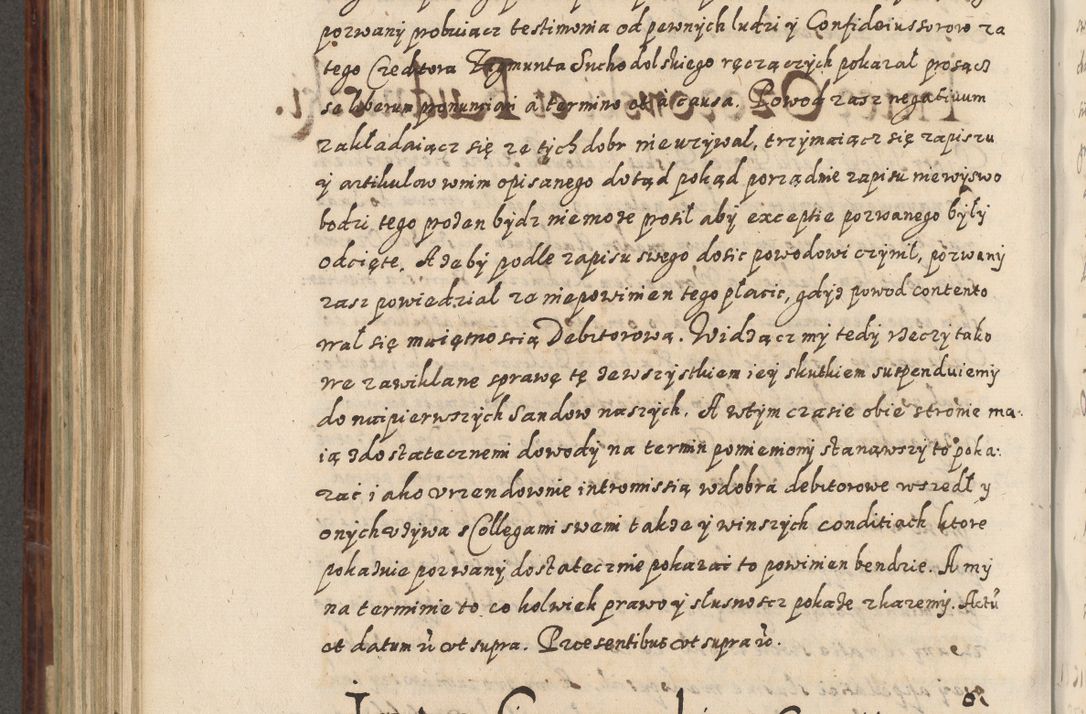 pozwany probuiącz testimonia od pewnych ludzi y Confideiussorow za
tego Creditora Zygmunta Suchodolskiego ręczączych pokazał prosącz
se liberum pronunciari a termino et a causa. Powod zasz negatiuum
zakładaiącz się ze tych dobr nie uzywał, trzymaiącz się zapiszu
y artikulow wnim opisanego dotąd pokąd porządnie zapisu niewyswo
bodzi tego prozen bydz niemoze prosił aby exceptie pozwanego były
odcięte. A zeby podle zapisu swego dosic powodowi czynił, pozwany
zasz powiedział za niepowinien tego płacic, gdyz powod contento
wał się maiętnoscią Debitorową. Widzącz my tedy rzeczy tako
we zawikłane sprawę tę zewszystkiem iey skutkiem suspenduiemy
do naipierwszych Sandow naszych. A wtym czasie obie stronie ma:
ią zdostatecznemi dowody na termin pomieniony stanąwszy to poka:
zac iako vrzendownie intromissią wdobra debitorowe wszedł y
onych vzywa s Collegami swemi takze y winszych conditiach ktore
pokazuie pozwany dostatecznie pokazac to powinien bendzie. A my
na terminie to co kolwiek prawo y słusnoscz pokaze zkazemy. Actū
et datum ū ut supra. Præsentibus ut supra ū.